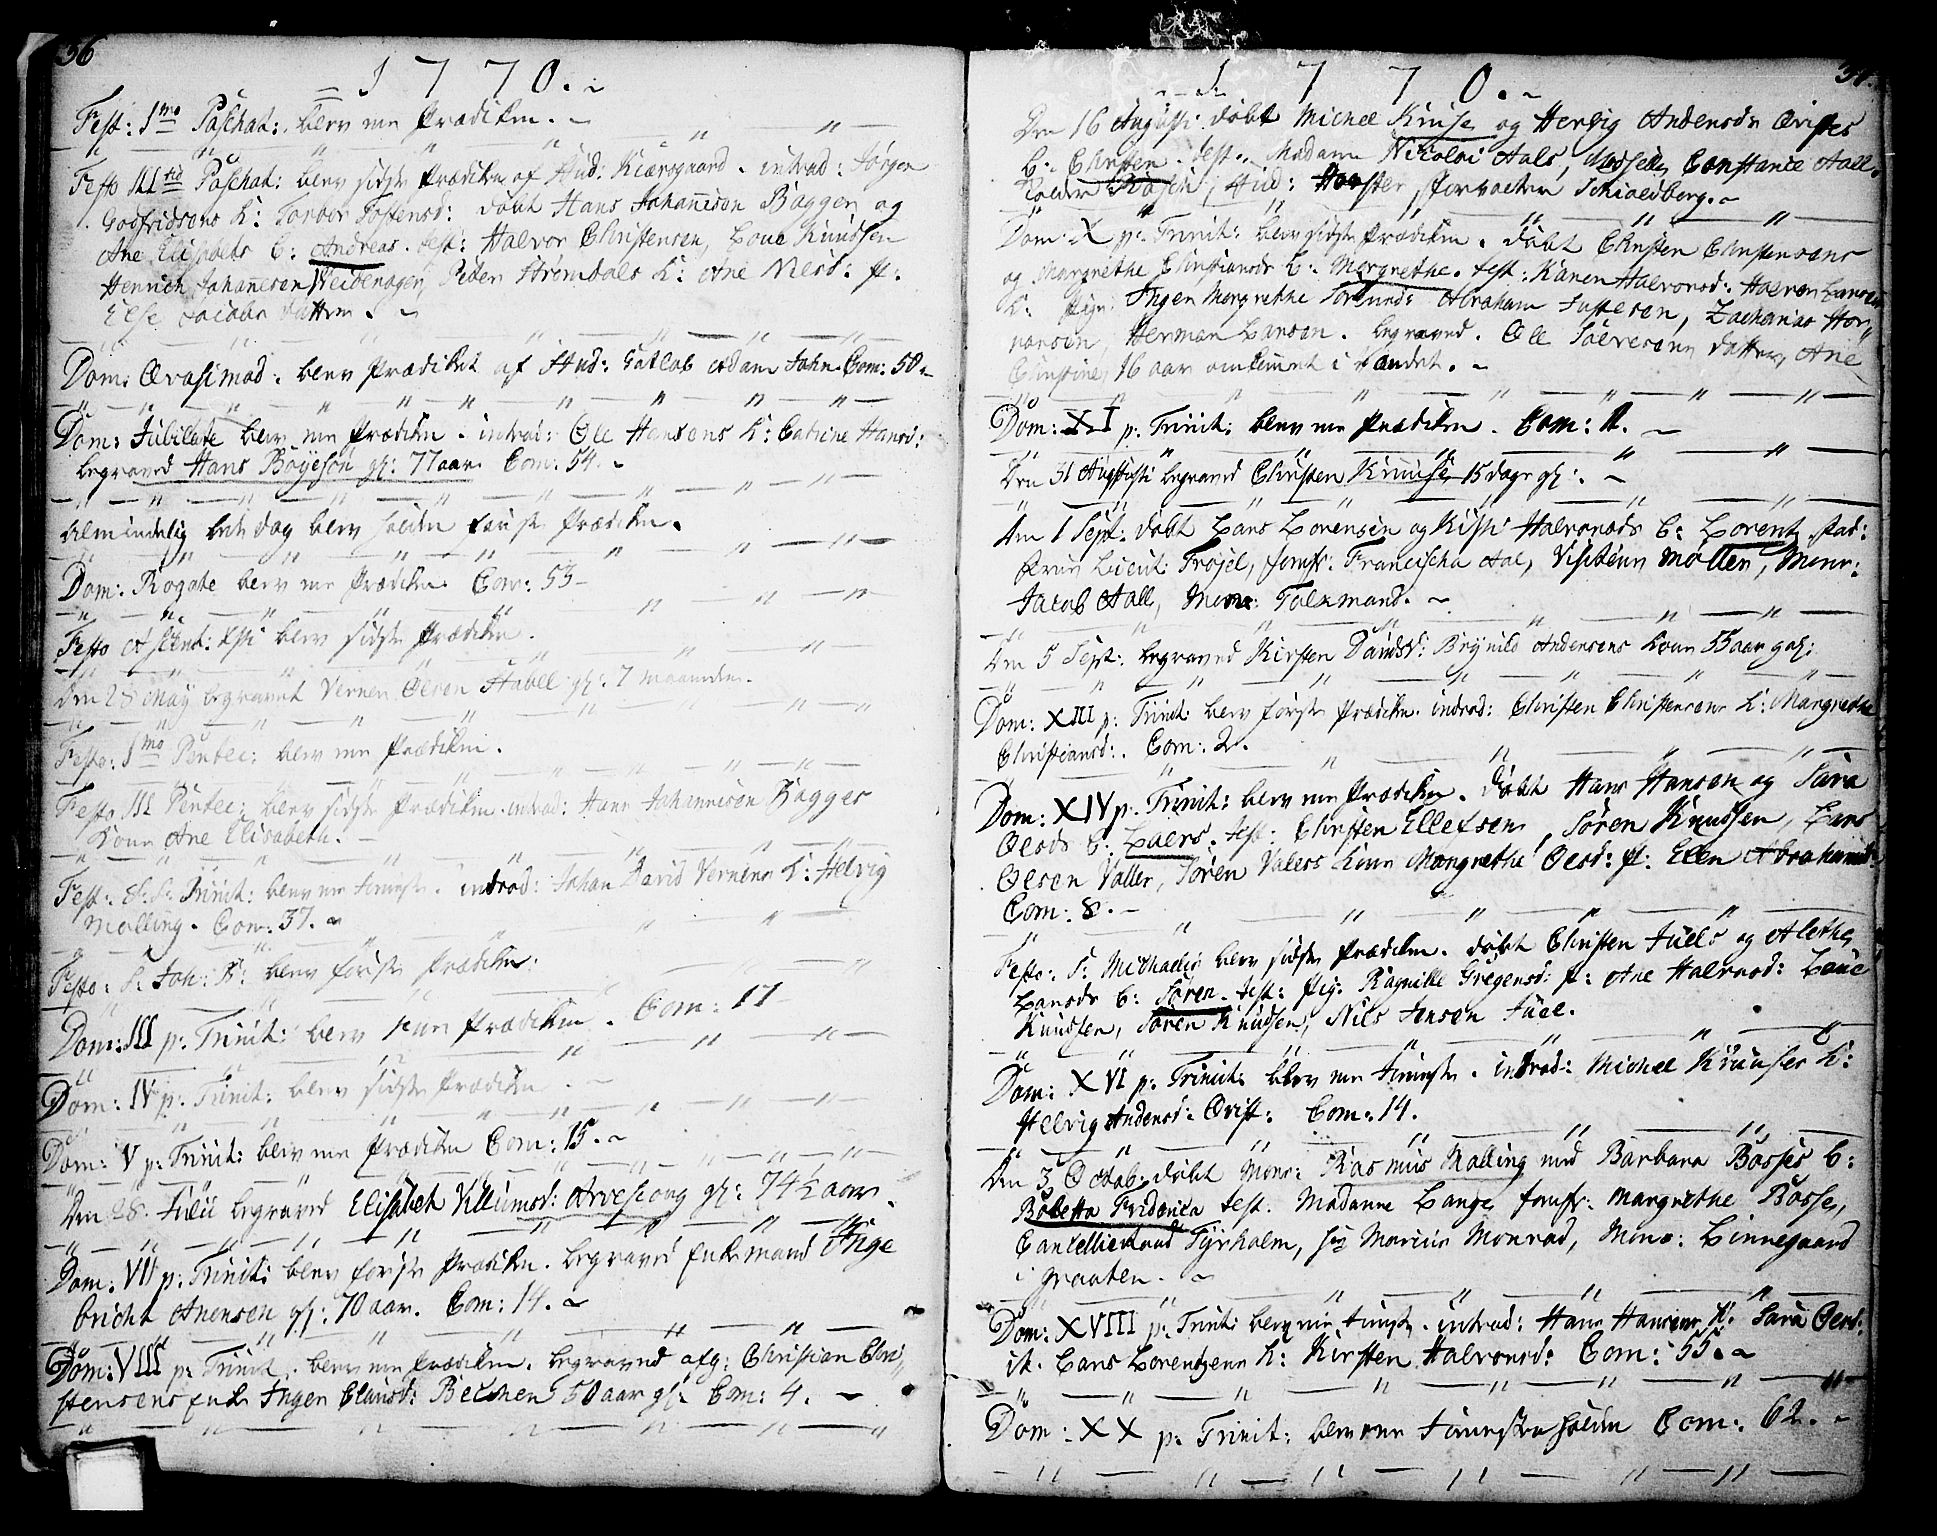 36
1770.
Fest: 1mo Paschat: blev een Prædiken.
Festo IIItio Paschat: blev sidste Prædiken af Stud: Kiærgaard. introd: Jørgen
Godfridsens K: Torbor Tostensd: døbt Hans Johannesen Bagger og
Ane Elisabets B: Andreas. test: Halvor Christensen, Lone Knudsen
Henrich Johannesen Weidenager, Peder Strømdals K: Ane Nielsd: p:
Else Jacobs datter.
Dom: Qvasimod: blev Prædiket af Stud: Gotlob Adam John. Com: 50
Dom: Jubilate blev een Prædiken. introd: Ole Hansens K: Catrine Hansd:
begraved Hans Bøyeson gl: 77 aar. Com: 54.
Almindelig bededag blev holden første Prædiken.
Dom: Rogate blev een Prædiken. Com: 53
Festo Ascens: Xsti blev sidste Prædiken.
den 28 May begravet Vernen Olsen Stabel gl: 7 maaneder.
Festo: 1mo Pentec: blev een Prædiken.
Festo III Pentec: blev sidste Prædiken. introd: Hans Johannesen Bagges
Kone Ane Elisabeth.
Fest: S: S: Trinit: blev een tieneste. introd: Johan David Vernens K: Helvig
Malling. Com: 37.
Festo: S: Joh: B: blev første Prædiken:
Dom: III p: Trinit: blev kun Prædiken. Com: 17
Dom: IV p: Trinit: blev sidste Prædiken.
Dom: V p: Trinit: blev een Prædiken Com: 15.
Den 28. Julii begraved Elisabeth Villumsd: Arveschoug gl: 74 1/2 aar.
Dom: VII p: Trinit: blev første Prædiken. begraved Enkemand Inge
bricht Anensen gl: 70 aar. Com: 14.
Dom: VIII p: Trinit. blev een Prædiken. begraved afg: Christian Chri
stensens Enke Ingen Clausd: Bechen 50 aar gl: Com: 4.
37.
1770.
Den 16 Augusti døbt Michel Kruse og Hervig Andersds Qvistes
B: Christen. test: Madame Nicolai Aals, Mosselle Constance Aall.
Tolder Rasch, Stud: Horster, forvalter Schioldberg.
Dom: X p: Trinit: blev sidste Prædiken. døbt Christen Christensens
og Margrethe Christiansds B: Margrethe. test: Karen Halvorsd: Halvor Larsens
K: Pige Ingen Margrethe Torlunds Abraham Justesen, Zacharias Hor
nansen, Herman Larsen. begraved. Ole Solvesens datter Ane
Christine, 16 aar omkommet i Vandet.
Dom: XI p: Trinit: blev een Prædiken. Com: 11.
Den 31 Augusti begraved Christen Kruuse 15 dage gl:
Den 1 Sept: døbt Lars Lorensen og Kisti Halvorsds B: Lorentz. fad:
Frue Lieut: Trojel, Jomfr: Francischa Aal, Visiteur Møller, Monr:
Jacob Aall, Monr: Talxmand.
Den 5 Sept: begraved Kirsten Davidsd: Brynild Andersens Kone 55 aar gl:
Dom: XIII p: Trinit: blev første Prædiken. introd: Christen Christensens K: Margrethe
Christiansd: Com: 2.
Dom: XIV p: Trinit: blev een Prædiken. døbt Hans Hansen og Sara
Olsds B: Laers. test: Christen Ellefsen, Søren Knudsen, Lars
Olsen Valler, Søren Valers Kone Margrethe Olsd: p: Elen Abrahamsd:
Com: 8.
Festo: S: Michaelis blev sidste Prædiken. døbt Christen Juels og Alethe
Larsds B: Søren. test: Pig: Ragnille Gregersd: p: Ane Halvorsd: Lone
Knudsen, Søren Knudsen, Nils Jensen Juel.
Dom: XVI p: Trinit: blev een tieneste. introd: Michel Kruuses K:
Helvig Andersd: Qvist: Com: 14.
Den 3 Octob: døbt Monr: Rasmus Malling med Barbara Bosses B:
Boletta Friderica test. Madame Lange Jomfr: Margrethe Bosse,
Cancellieraad Tyrholm, Hr Marcus Monrad, Monr: Linnegaard
i graaten.
Dom: XVIII p: Trinit: blev een tieneste. introd: Hans Hansens K: Sara Olsd:
it. Lars Lorentzens K: Kirsten Halvorsd: Com: 55.
Dom: XX p: Trinit: blev een tieneste holden Com: 62.